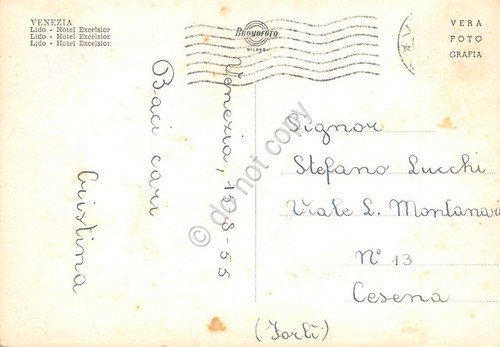 VENEZIA
Lido - Hotel Excelsior
Lido - Hotel Excelsior
Lido - Hotel Excelsior
BROMOFOTO
MILANO
VERA
FOTO
GRAFIA
Venezia, 15-8-55
Baci cari
Cristina
Signor
Stefano Lucchi
Viale L. Montanari
N° 13
Cesena
(Forlì)
© do not copy